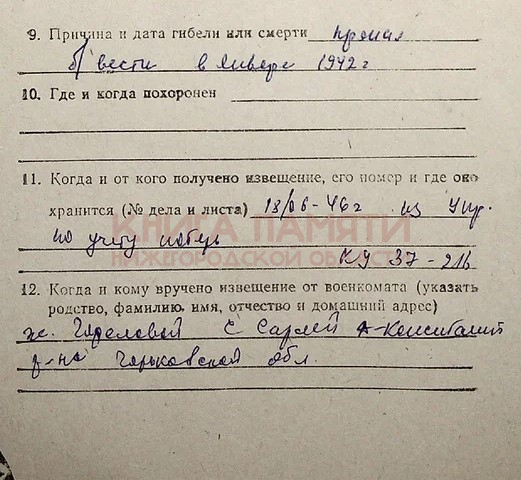 9. Причина и дата гибели или смерти пропал
б/ вести в январе 1942 г
10. Где и когда похоронен
11. Когда и от кого получено извещение, его номер и где оно
хранится (№ дела и листа) 18/06-46 г из Упр.
по учету потерь
КНИГА ПАМЯТИ
НИЖЕГОРОДСКОЙ ОБЛАСТИ
КУ 37-216
12. Когда и кому вручено извещение от военкомата (указать
родство, фамилию, имя, отчество и домашний адрес)
ж. Гореловой с Сарлей
р-на Горьковской обл.